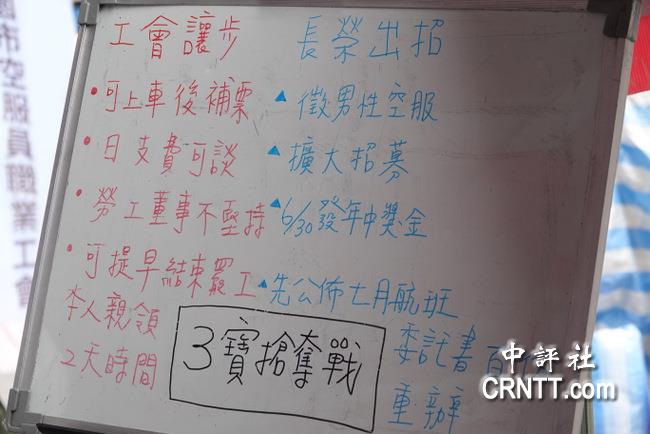 工會讓步
長榮出招
•可上車後補票
▲徵男性空服
•日支費可談
▲擴大招募
•勞工董事不堅持
▲6/30發年中獎金
•可提早結束罷工
▲先公佈七月航班
本人親領
2天時間
3寶搶奪戰
委託書
重辦
市空服員職業工會
中評社
CRNTT.com